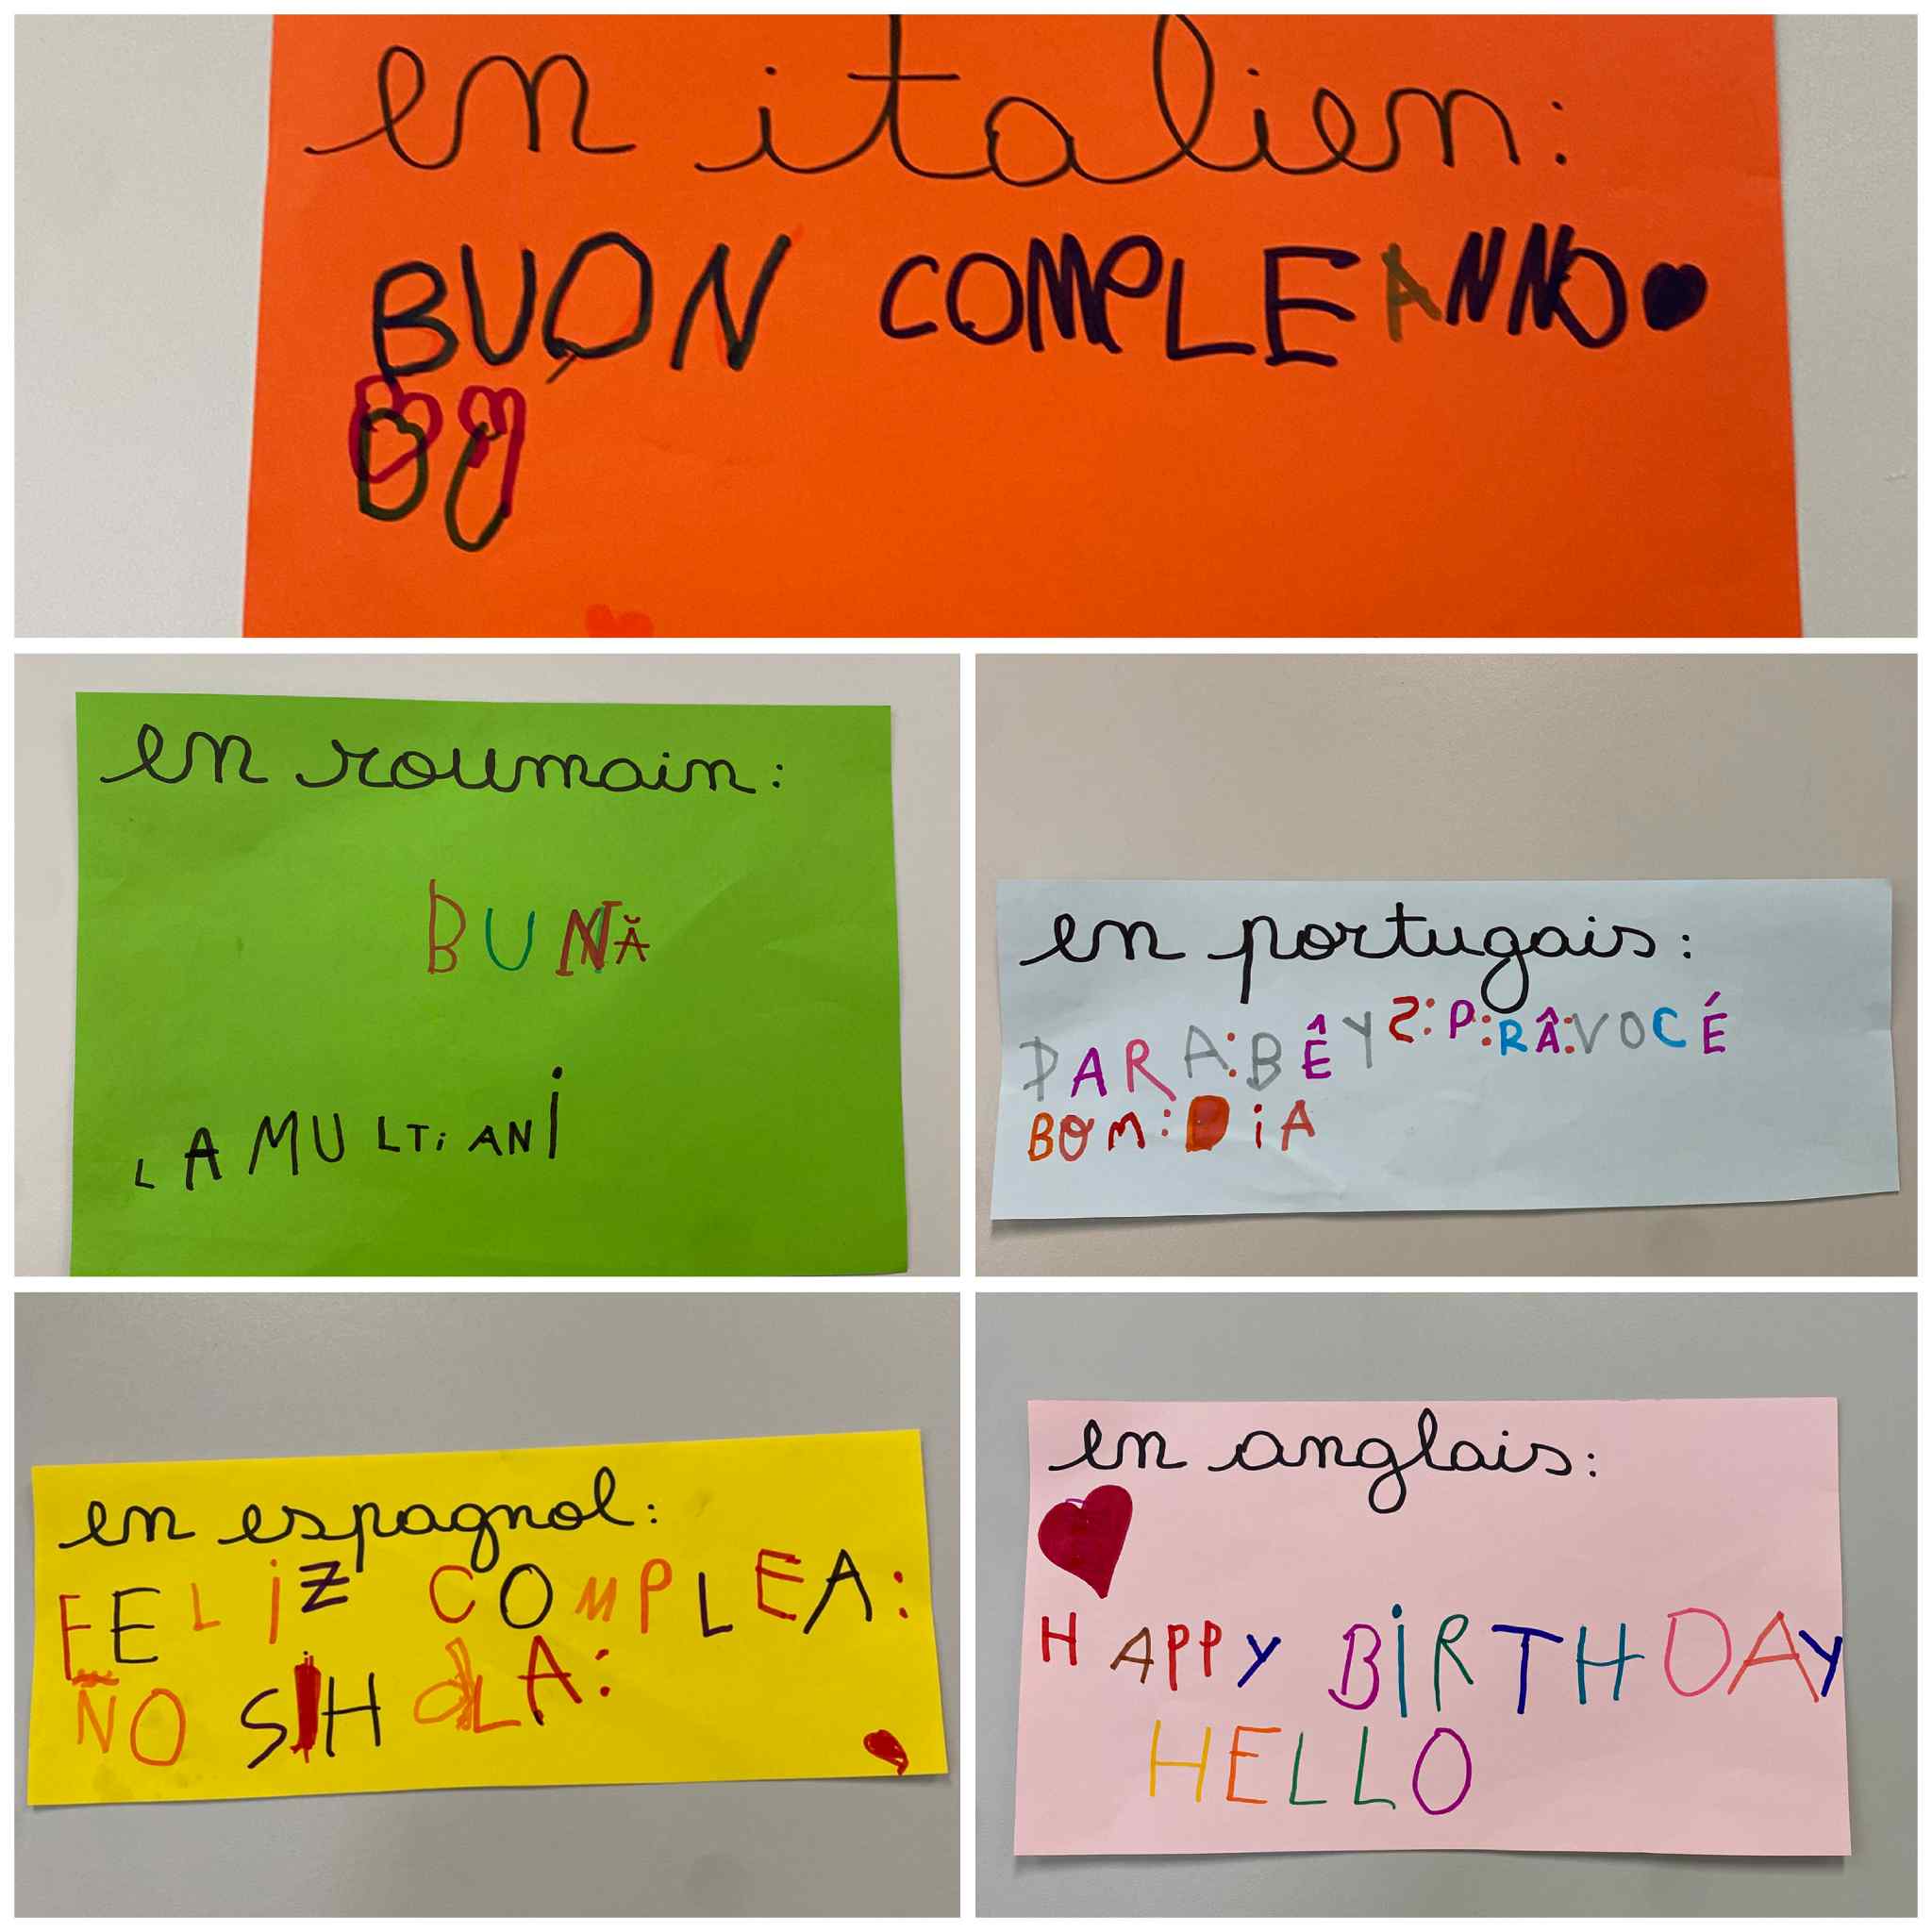 en italien:
BUON COMPLEANNO
en roumain:
BUNĂ
LA MULTi ANi
en portugais:
PARA:BÊYS:P:RÂ:VOCÉ
BOM:DiA
en espagnol:
FELiZ COMPLEA:
ÑO SiH OLA:
en anglais:
HAPPY BiRTHDAY
HELLO